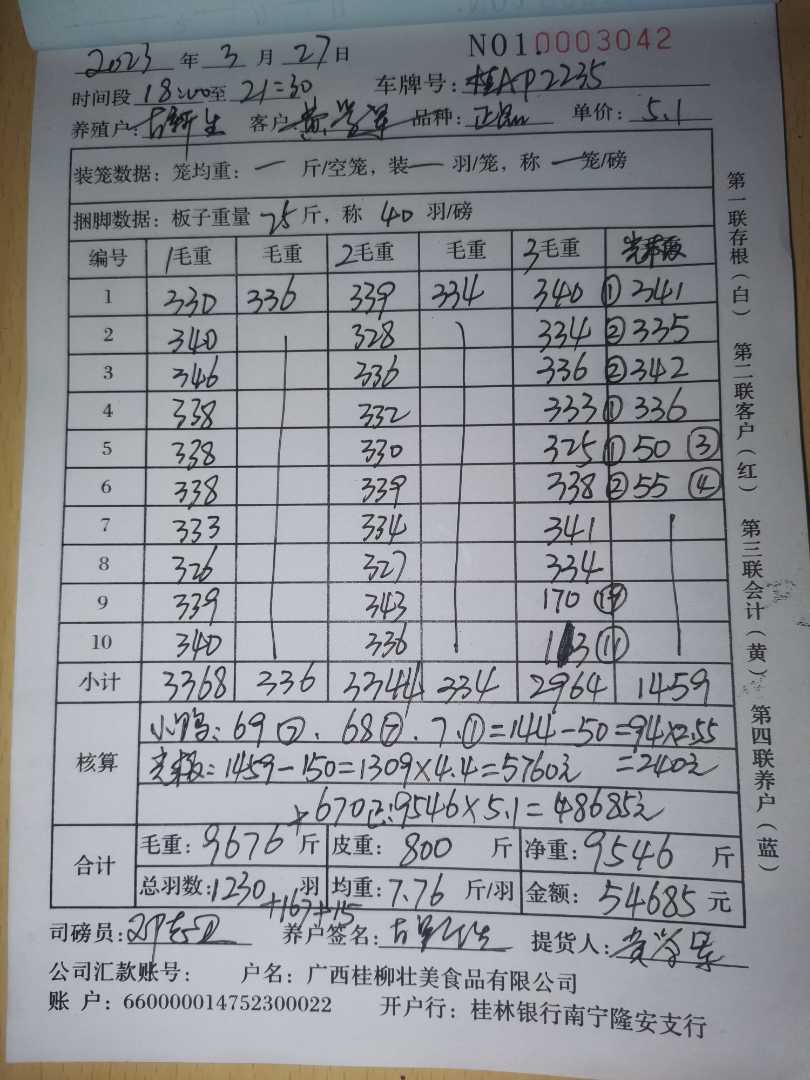 NO1.0003042
2023 年 3 月 27 日
时间段 18:00 至 21:30 车牌号: 桂AP2235
养殖户: 客户 品种: 正品 单价: 5.1
装笼数据: 笼均重: 一 斤/空笼, 装 一 羽/笼, 称 一 笼/磅
捆脚数据: 板子重量 25 斤, 称 40 羽/磅
编号 1毛重 毛重 2毛重 毛重 3毛重
1 330 336 339 334 340 ① 341
2 340 328 334 ② 335
3 346 336 336 ② 342
4 338 332 333 ① 336
5 338 330 325 ① 50 ③
6 338 339 338 ② 55 ④
7 333 334 341
8 326 327 334
9 339 343 170
10 340 336 ⑪
小计 3368 336 3344 334 2964 1459
核算
小鸭: 69 ⑦. 68 ⑦. 7.① =144-50=94×2.55
=240元
1459-150=1309×4.4=5760元
+670 9546×5.1=48685元
合计
毛重: 9676 斤 皮重: 800 斤 净重: 9546 斤
总羽数: 1230 羽 均重: 7.76 斤/羽 金额: 54685 元
+167+15
司磅员: 养户签名: 提货人:
公司汇款账号: 户名: 广西桂柳壮美食品有限公司
账 户: 660000014752300022 开户行: 桂林银行南宁隆安支行
第一联存根(白) 第二联客户(红) 第三联会计(黄) 第四联养户(蓝)